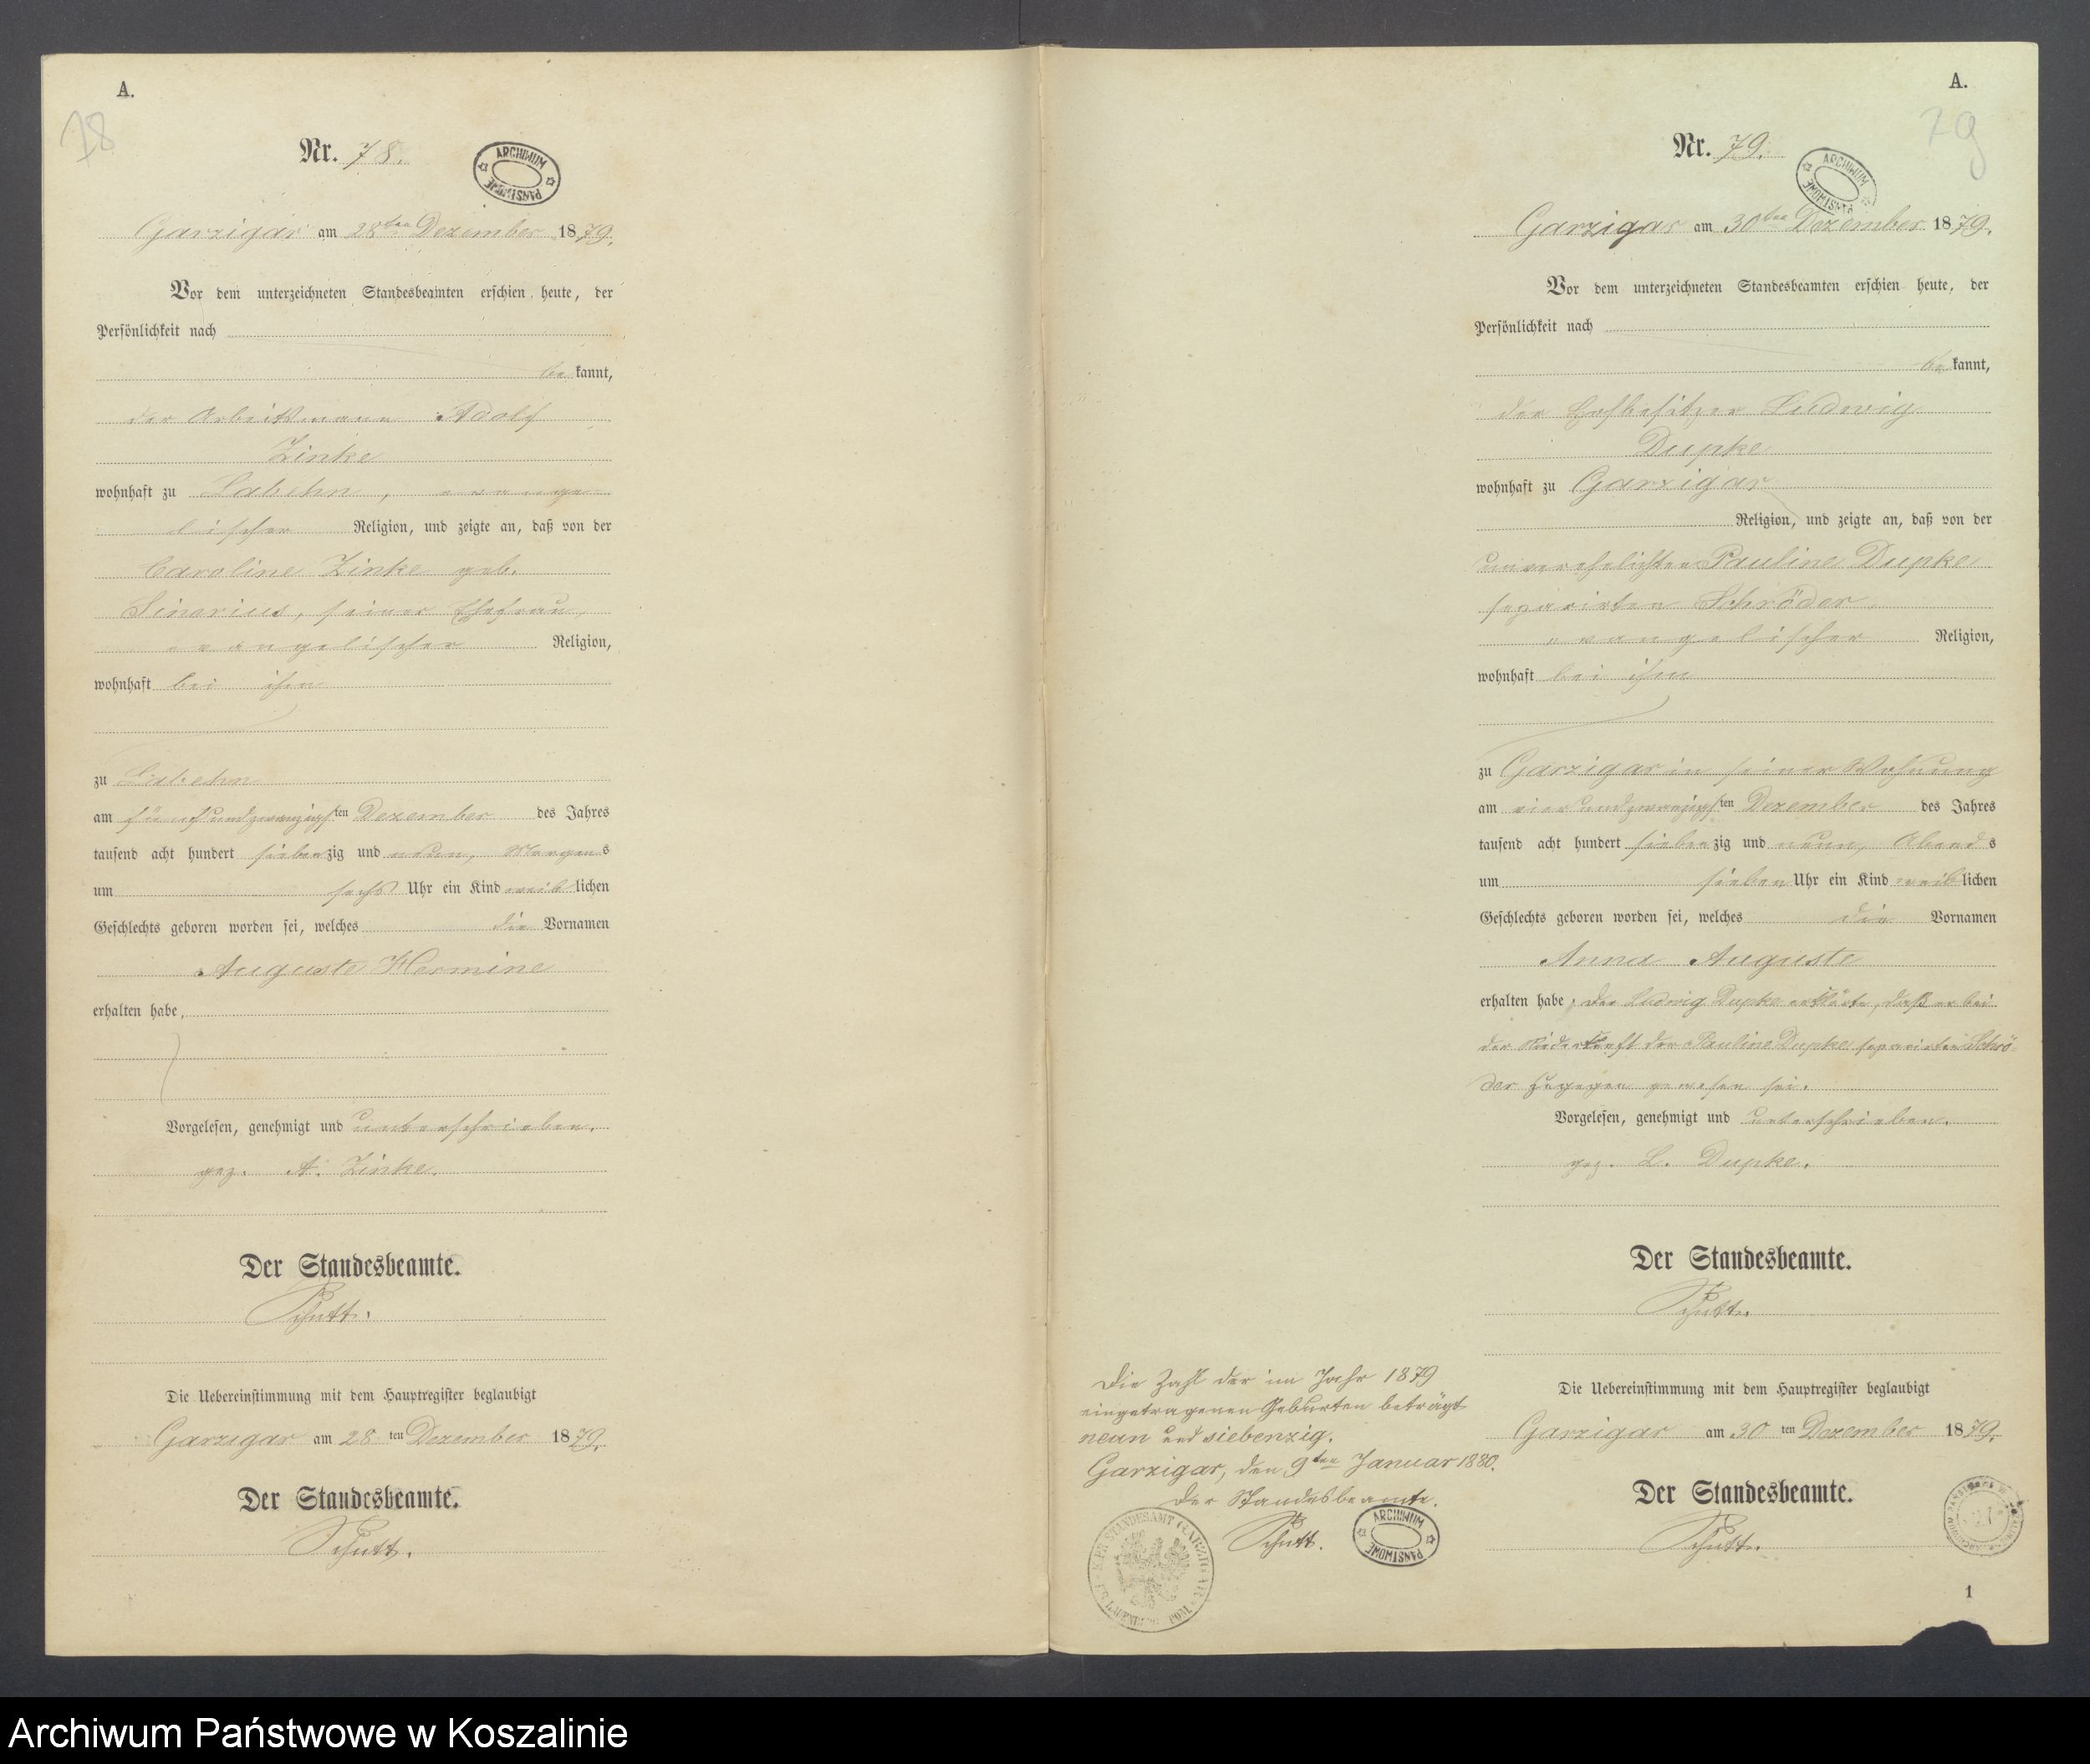 A.
78
Nr. 78.
ARCHIWUM PAŃSTWOWE
Garzigar am 28ten Dezember 1879.
Vor dem unterzeichneten Standesbeamten erschien heute, der
Persönlichkeit nach
be kannt,
der Arbeitsmann Adolf
Zinke
wohnhaft zu Labehn, evange-
lischer Religion, und zeigte an, daß von der
Caroline Zinke geb.
Sinarius, seiner Ehefrau,
evangelischer Religion,
wohnhaft bei ihm
zu Labehn
am fünfundzwanzigsten Dezember des Jahres
tausend acht hundert siebenzig und neun, Morgens
um sechs Uhr ein Kind weiblichen
Geschlechts geboren worden sei, welches die Vornamen
Auguste Hermine
erhalten habe,
Vorgelesen, genehmigt und unterschrieben.
gez. A. Zinke.
Der Standesbeamte.
Schutt.
Die Uebereinstimmung mit dem Hauptregister beglaubigt
Garzigar am 28 ten Dezember 1879.
Der Standesbeamte.
Schutt.
A.
79
Nr. 79.
ARCHIWUM PAŃSTWOWE
Garzigar am 30ten Dezember 1879.
Vor dem unterzeichneten Standesbeamten erschien heute, der
Persönlichkeit nach
be kannt,
der Hofbesitzer Ludwig
Dupke
wohnhaft zu Garzigar
Religion, und zeigte an, daß von der
unverehelichten Pauline Dupke
separirten Schröder
evangelischer Religion,
wohnhaft bei ihm
zu Garzigar in seiner Wohnung
am vierundzwanzigsten Dezember des Jahres
tausend acht hundert siebenzig und neun, Abends
um sieben Uhr ein Kind weiblichen
Geschlechts geboren worden sei, welches die Vornamen
Anna Auguste
erhalten habe, der Ludwig Dupke erklärte, daß er bei
der Niederkunft der Pauline Dupke separirten Schrö-
der zugegen gewesen sei.
Vorgelesen, genehmigt und unterschrieben.
gez. L. Dupke.
Der Standesbeamte.
Schutt.
Die Uebereinstimmung mit dem Hauptregister beglaubigt
Garzigar am 30 ten Dezember 1879.
Der Standesbeamte.
Schutt.
1
Die Zahl der im Jahr 1879
eingetragenen Geburten beträgt
neun und siebenzig.
Garzigar, den 9ten Januar 1880.
Der Standesbeamte.
Schutt.
ARCHIWUM PAŃSTWOWE
Archiwum Państwowe w Koszalinie